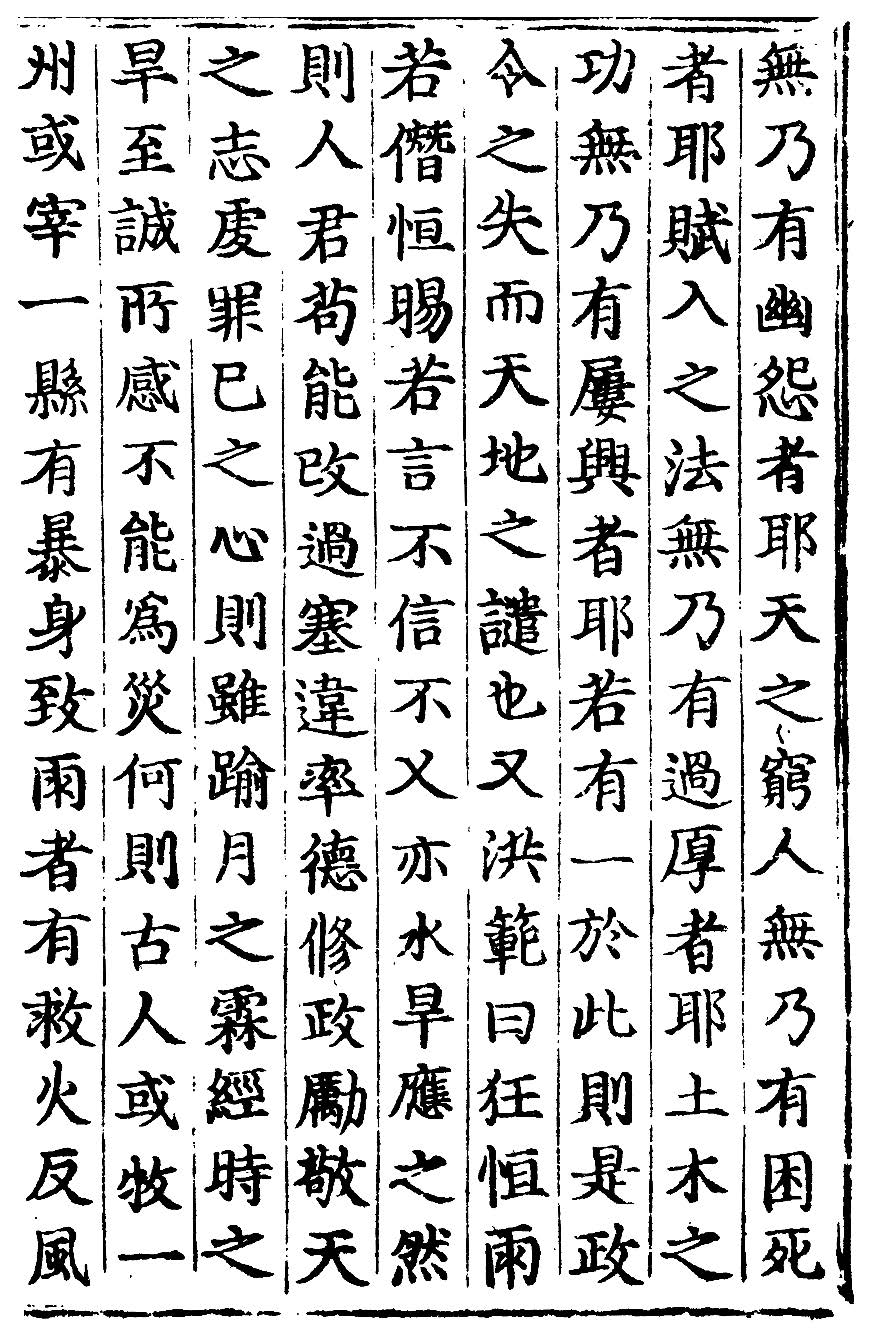 無乃有幽怨者耶天之窮人無乃有困死
者耶賦入之法無乃有過厚者耶土木之
功無乃有屢興者耶若有一於此則是政
令之失而天地之譴也又洪範曰狂恒雨
若僭恒暘若言不信不乂亦水旱應之然
則人君苟能改過塞違率德修政勵敬天
之志虔罪已之心則雖踰月之霖經時之
旱至誠所感不能爲災何則古人或牧一
州或宰一縣有暴身致雨者有救火反風